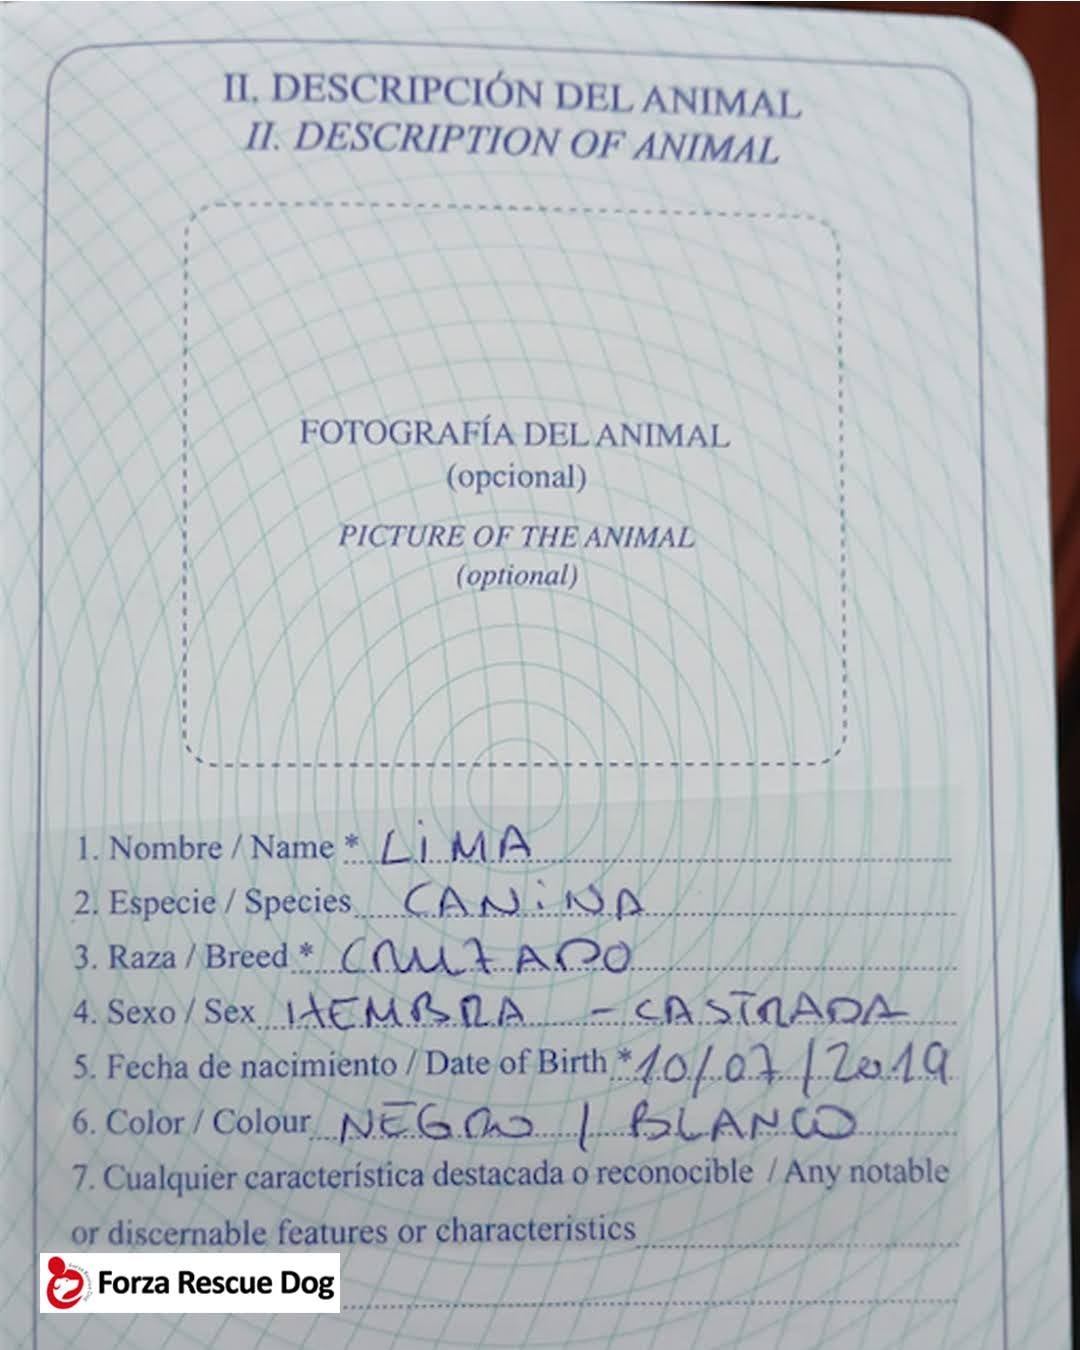 II. DESCRIPCIÓN DEL ANIMAL
II. DESCRIPTION OF ANIMAL
FOTOGRAFÍA DEL ANIMAL
(opcional)
PICTURE OF THE ANIMAL
(optional)
1. Nombre / Name * LiMA
2. Especie / Species CANiNA
3. Raza / Breed * CRUZADO
4. Sexo / Sex HEMBRA - CASTRADA
5. Fecha de nacimiento / Date of Birth * 10/07/2019
6. Color / Colour NEGRO / BLANCO
7. Cualquier característica destacada o reconocible / Any notable
or discernable features or characteristics
Forza Rescue Dog